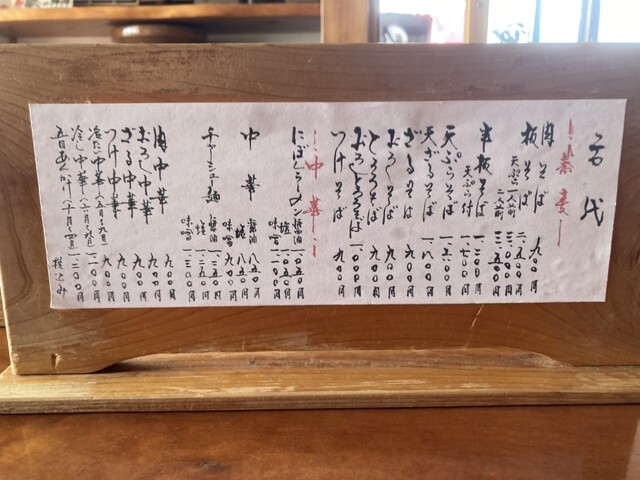 お代
蕎麦
肉そば 九〇〇円
板そば 二.五〇〇円
天ぷら一人前 三.〇〇〇円
天ぷら二人前 三.五〇〇円
半板そば 一.二〇〇円
天ぷら付 一.七〇〇円
天ぷらそば 一.六〇〇円
天ざるそば 一.八〇〇円
ざるそば 九〇〇円
おろしそば 九〇〇円
とろろそば 九〇〇円
おろしとろろそば 一.〇〇〇円
つけそば 九〇〇円
中華
にぼしラーメン 醤油 一.〇五〇円
塩 一.〇五〇円
味噌 一.一〇〇円
中華 醤油 八五〇円
塩 八五〇円
味噌 九〇〇円
チャーシュー麺 醤油 一.二五〇円
塩 一.二五〇円
味噌 一.三〇〇円
肉中華 九〇〇円
おろし中華 九〇〇円
ざる中華 九〇〇円
つけ中華 九〇〇円
冷たい中華(五月〜九月) 九〇〇円
冷し中華 一.一〇〇円
五目あんかけ(十月〜四月) 一.二〇〇円
税込み